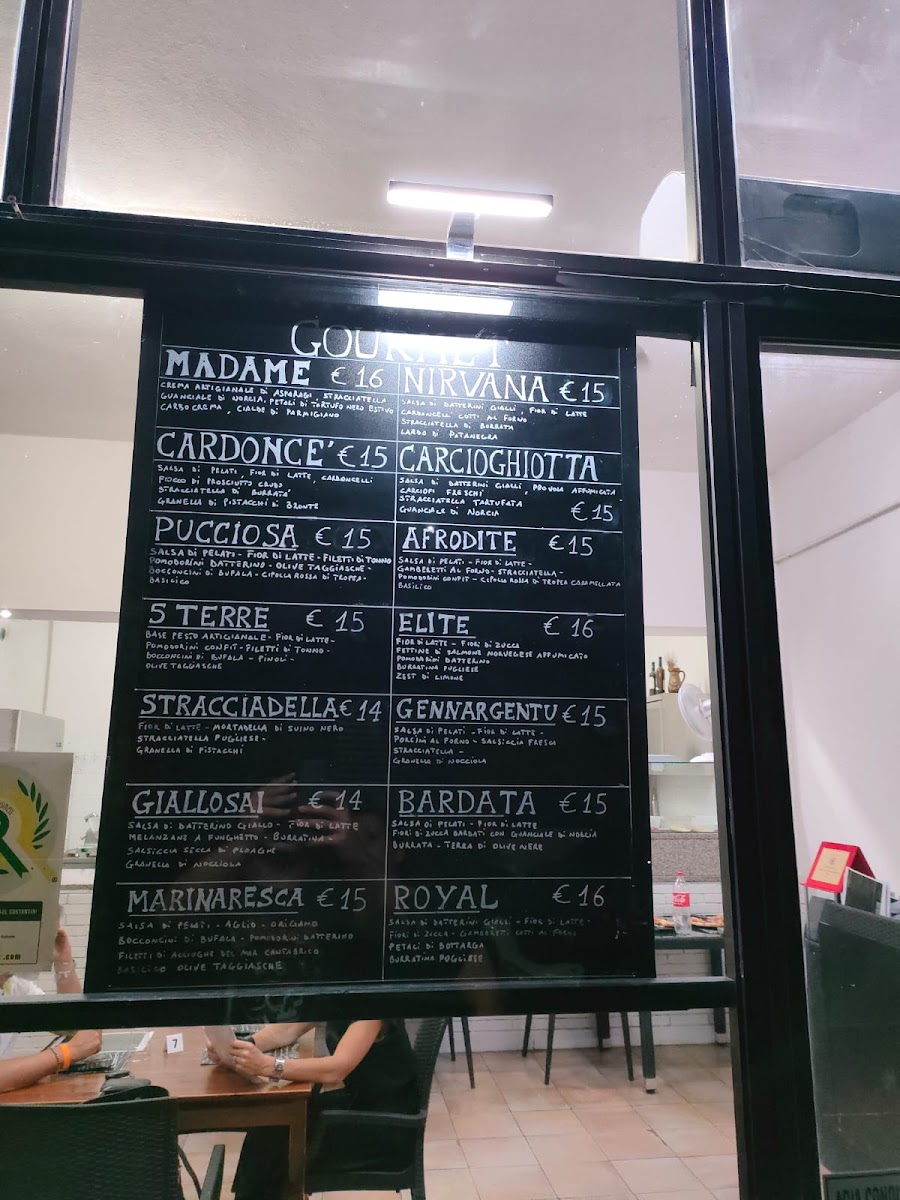 GOURMET
MADAME € 16
CREMA ARTIGIANALE DI ASPARAGI, STRACCIATELLA
GUANCIALE DI NORCIA, PETALI DI TARTUFO NERO ESTIVO
CARBO CREMA, CIALDE DI PARMIGIANO
NIRVANA € 15
SALSA DI DATTERINI GIALLI, FIOR DI LATTE
CARDONCELLI COTTI AL FORNO
STRACCIATELLA DI BURRATA
LARDO DI PATANEGRA
CARDONCE' € 15
SALSA DI PELATI, FIOR DI LATTE, CARDONCELLI
FIOCCO DI PROSCIUTTO CRUDO
STRACCIATELLA DI BURRATA
GRANELLA DI PISTACCHI DI BRONTE
CARCIOGHIOTTA
SALSA DI DATTERINI GIALLI, PROVOLA AFFUMICATA
CARCIOFI FRESCHI
STRACCIATELLA TARTUFATA
GUANCIALE DI NORCIA € 15
PUCCIOSA € 15
SALSA DI PELATI - FIOR DI LATTE - FILETTI DI TONNO
POMODORINI DATTERINO - OLIVE TAGGIASCHE -
BOCCONCINI DI BUFALA - CIPOLLA ROSSA DI TROPEA -
BASILICO
AFRODITE € 15
SALSA DI PELATI - FIOR DI LATTE -
GAMBERETTI AL FORNO - STRACCIATELLA -
POMODORINI CONFIT - CIPOLLA ROSSA DI TROPEA CARAMELLATA
BASILICO
5 TERRE € 15
BASE PESTO ARTIGIANALE - FIOR DI LATTE -
POMODORINI CONFIT - FILETTI DI TONNO -
BOCCONCINI DI BUFALA - PINOLI -
OLIVE TAGGIASCHE
ELITE € 16
FIOR DI LATTE - FIORI DI ZUCCA
FETTINE DI SALMONE NORVEGESE AFFUMICATO
POMODORINI DATTERINO
BURRATINA PUGLIESE
ZEST DI LIMONE
STRACCIADELLA € 14
FIOR DI LATTE - MORTADELLA DI SUINO NERO
STRACCIATELLA PUGLIESE -
GRANELLA DI PISTACCHI
GENNARGENTU € 15
SALSA DI PELATI - FIOR DI LATTE -
PORCINI AL FORNO - SALSICCIA FRESCA
STRACCIATELLA -
GRANELLA DI NOCCIOLA
GIALLOSAI € 14
SALSA DI DATTERINO GIALLO - FIOR DI LATTE
MELANZANE A FUNGHETTO - BURRATINA -
SALSICCIA SECCA DI PLOAGHE
GRANELLA DI NOCCIOLA
BARDATA € 15
SALSA DI PELATI - FIOR DI LATTE
FIORI DI ZUCCA BARDATI CON GUANCIALE DI NORCIA
BURRATA - TERRA DI OLIVE NERE
MARINARESCA € 15
SALSA DI PELATI - AGLIO - ORIGANO
BOCCONCINI DI BUFALA - POMODORINI DATTERINO
FILETTI DI ACCIUGHE DEL MAR CANTABRICO
BASILICO OLIVE TAGGIASCHE
ROYAL € 16
SALSA DI DATTERINI GIALLI - FIOR DI LATTE -
FIORI DI ZUCCA - GAMBERETTI COTTI AL FORNO
PETALI DI BOTTARGA
BURRATINA PUGLIESE
R
.com
7